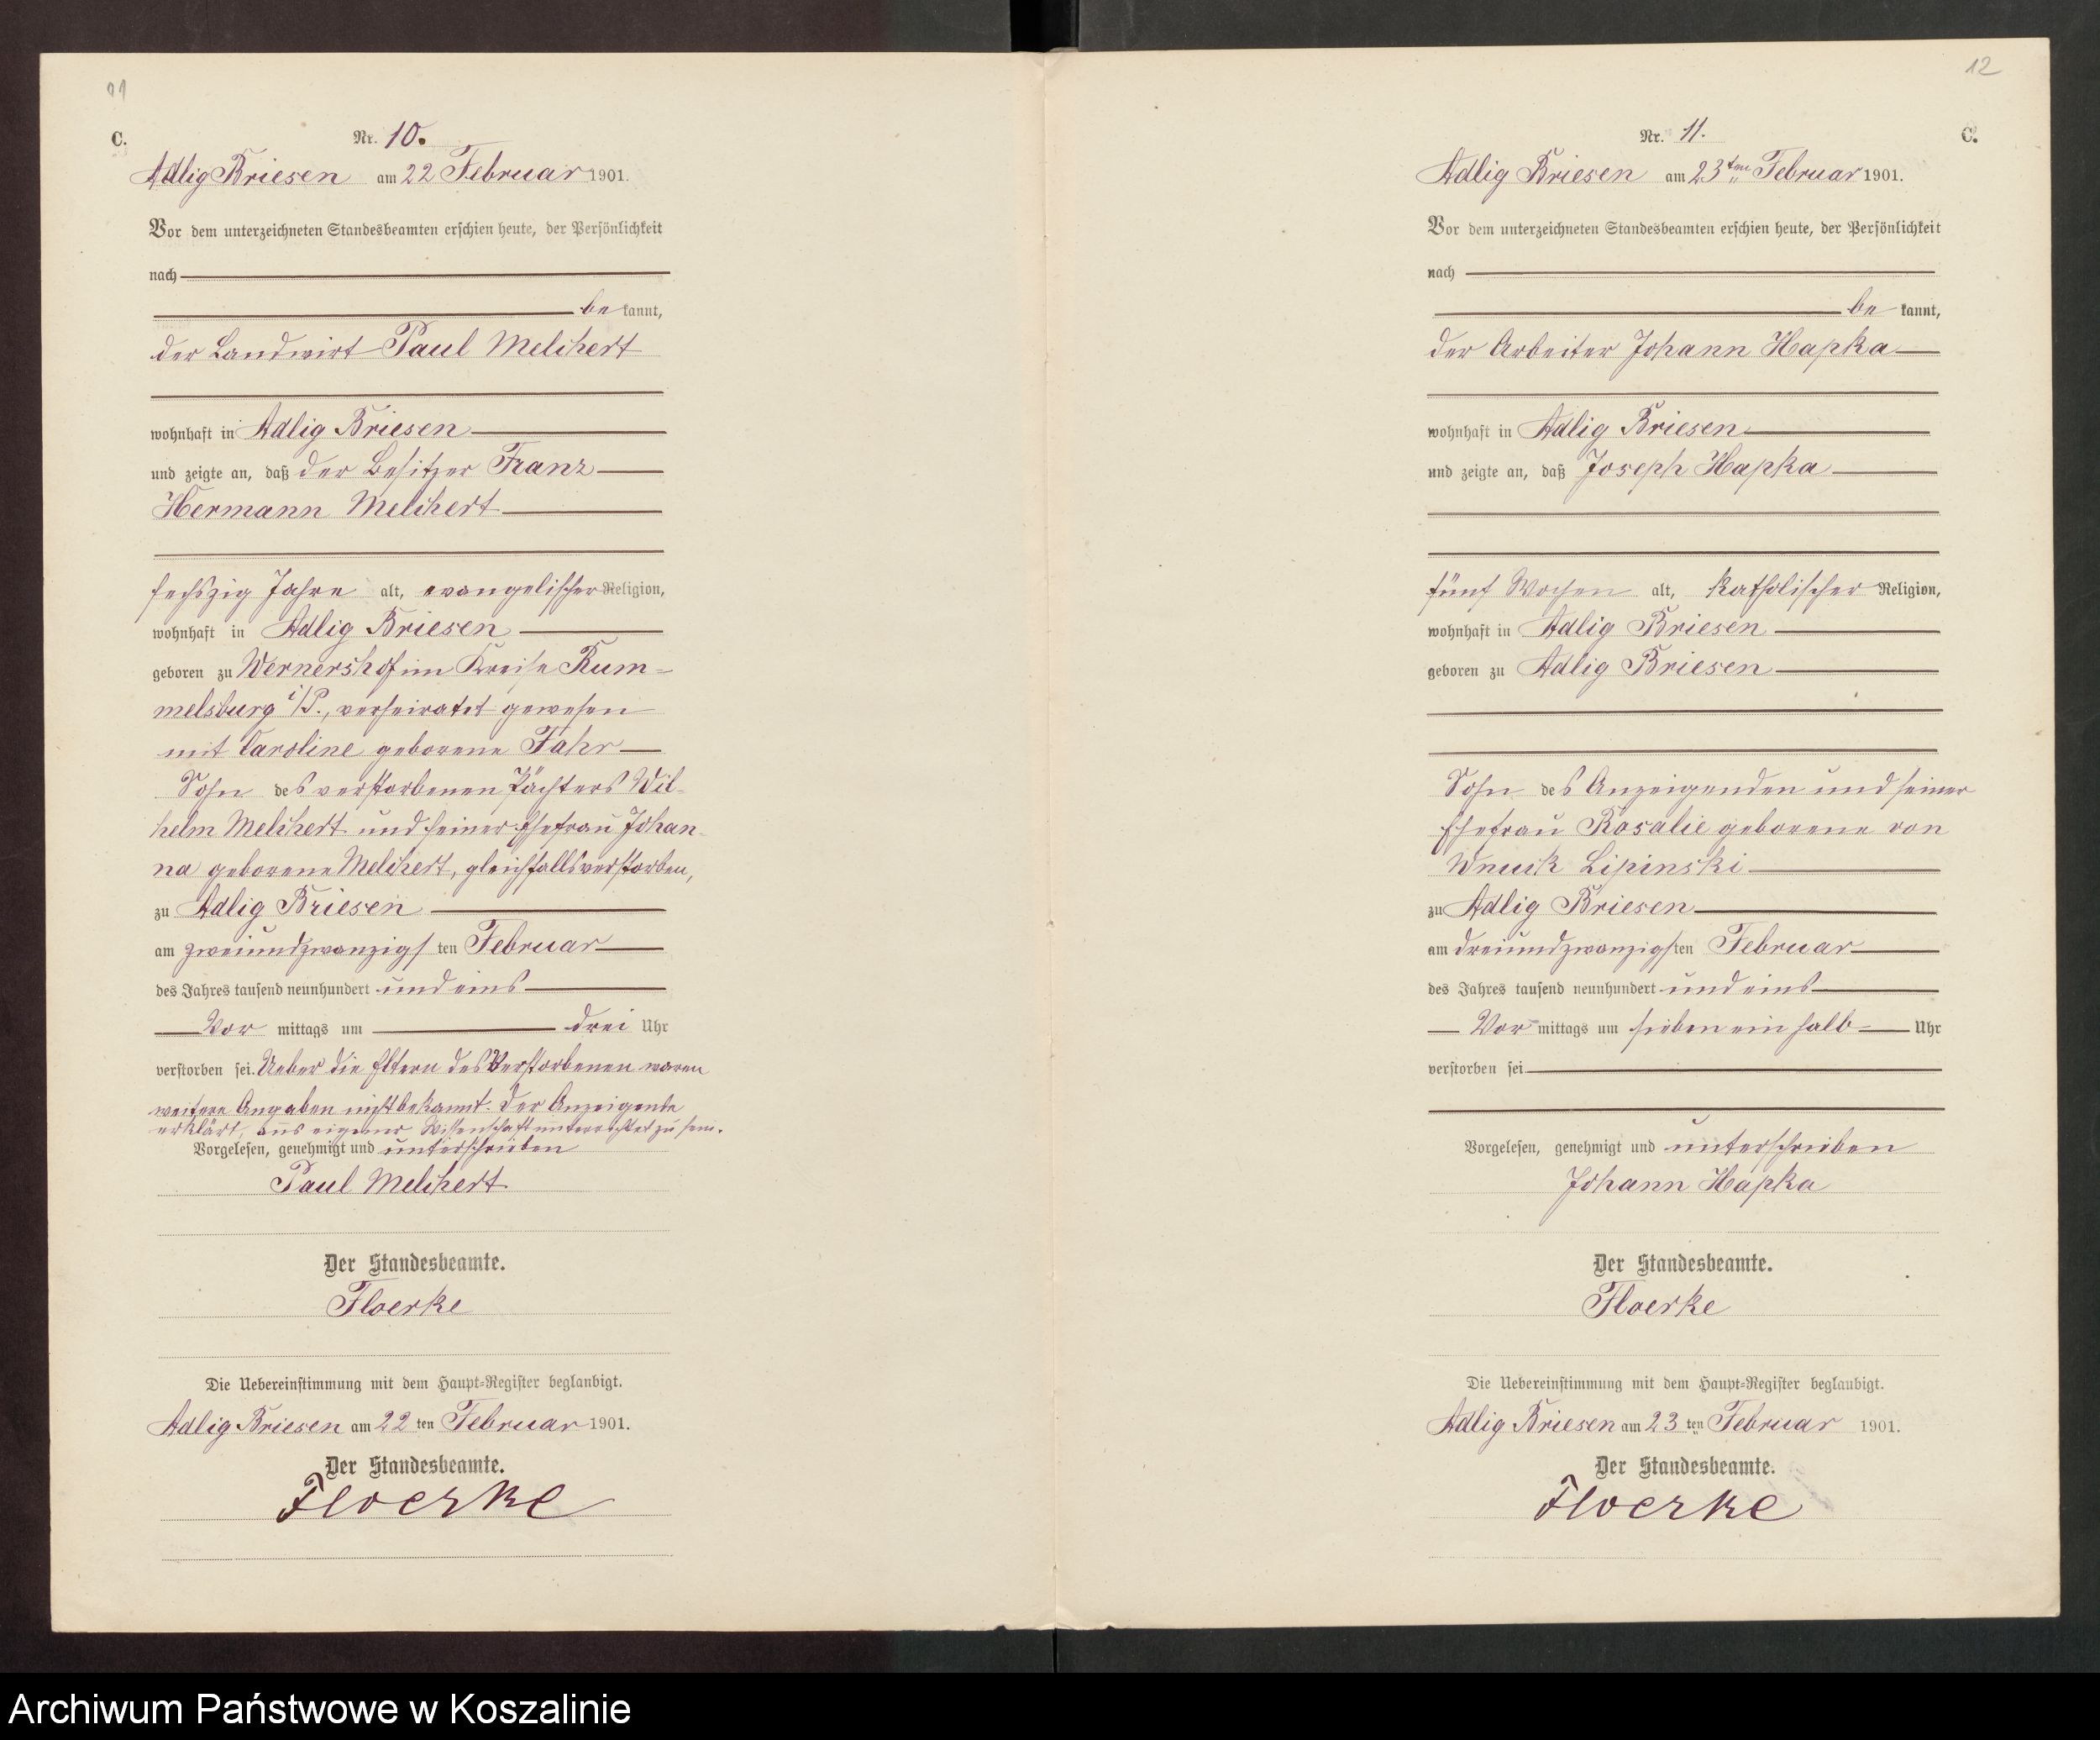 11
C.
Nr. 10.
Adlig Briesen am 22 Februar 1901.
Vor dem unterzeichneten Standesbeamten erschien heute, der Persönlichkeit
nach
be kannt,
der Landwirt Paul Melchert
wohnhaft in Adlig Briesen
und zeigte an, daß der Besitzer Franz
Hermann Melchert
sechszig Jahre alt, evangelischer Religion,
wohnhaft in Adlig Briesen
geboren zu Wernershof im Kreise Rum-
melsburg i/P., verheiratet gewesen
mit Caroline geborene Fahr
Sohn des verstorbenen Pächters Wil-
helm Melchert und seiner Ehefrau Johan-
na geborene Melchert, gleichfalls verstorben,
zu Adlig Briesen
am zweiundzwanzigs ten Februar
des Jahres tausend neunhundert und eins
Vor mittags um drei Uhr
verstorben sei. Ueber die Eltern des Verstorbenen waren
weitere Angaben nicht bekannt. Der Anzeigende
erklärt, aus eigener Wissenschaft unterrichtet zu sein.
Vorgelesen, genehmigt und unterschrieben
Paul Melchert
Der Standesbeamte.
Floerke
Die Uebereinstimmung mit dem Haupt-Register beglaubigt.
Adlig Briesen am 22 ten Februar 1901.
Der Standesbeamte.
Floerke
12
Nr. 11.
C.
Adlig Briesen am 23ten Februar 1901.
Vor dem unterzeichneten Standesbeamten erschien heute, der Persönlichkeit
nach
be kannt,
der Arbeiter Johann Hapka
wohnhaft in Adlig Briesen
und zeigte an, daß Joseph Hapka
fünf Wochen alt, katholischer Religion,
wohnhaft in Adlig Briesen
geboren zu Adlig Briesen
Sohn des Anzeigenden und seiner
Ehefrau Rosalie geborene von
Wnuck Lipinski
zu Adlig Briesen
am dreiundzwanzigsten Februar
des Jahres tausend neunhundert und eins
Vor mittags um sieben ein halb Uhr
verstorben sei
Vorgelesen, genehmigt und unterschrieben
Johann Hapka
Der Standesbeamte.
Floerke
Die Uebereinstimmung mit dem Haupt-Register beglaubigt.
Adlig Briesen am 23 ten Februar 1901.
Der Standesbeamte.
Floerke
Archiwum Państwowe w Koszalinie